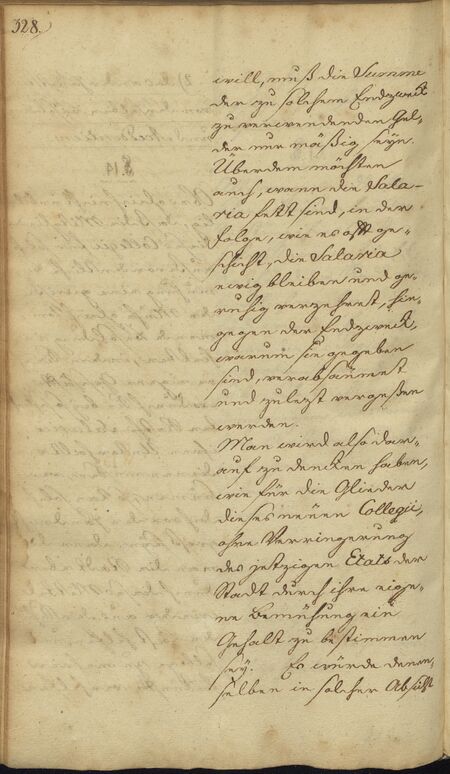 328.
will, muß die Summe
der zu solchem Endzweck
zu verwendenden Gel-
der nur mäßig seyn.
Überdem möchten
auch, wann die Sala-
ria fett sind, in der
folge, wie es oft ge-
schieht, die Salaria
ewig bleiben und ge-
ruhig verzehret, hin-
gegen der Endzweck,
warum sie gegeben
sind, verabsäumet
und zulezt vergeßen
werden.
Man wird also dar-
auf zu dencken haben,
wie für die Glieder
dieses neuen Collegii,
ohne Verringerung
des jetzigen Etats der
Stadt durch ihre eige-
ne Bemühung ein
Gehalt zu bestimmen
sey. Es würde denen-
selben in solcher Absicht